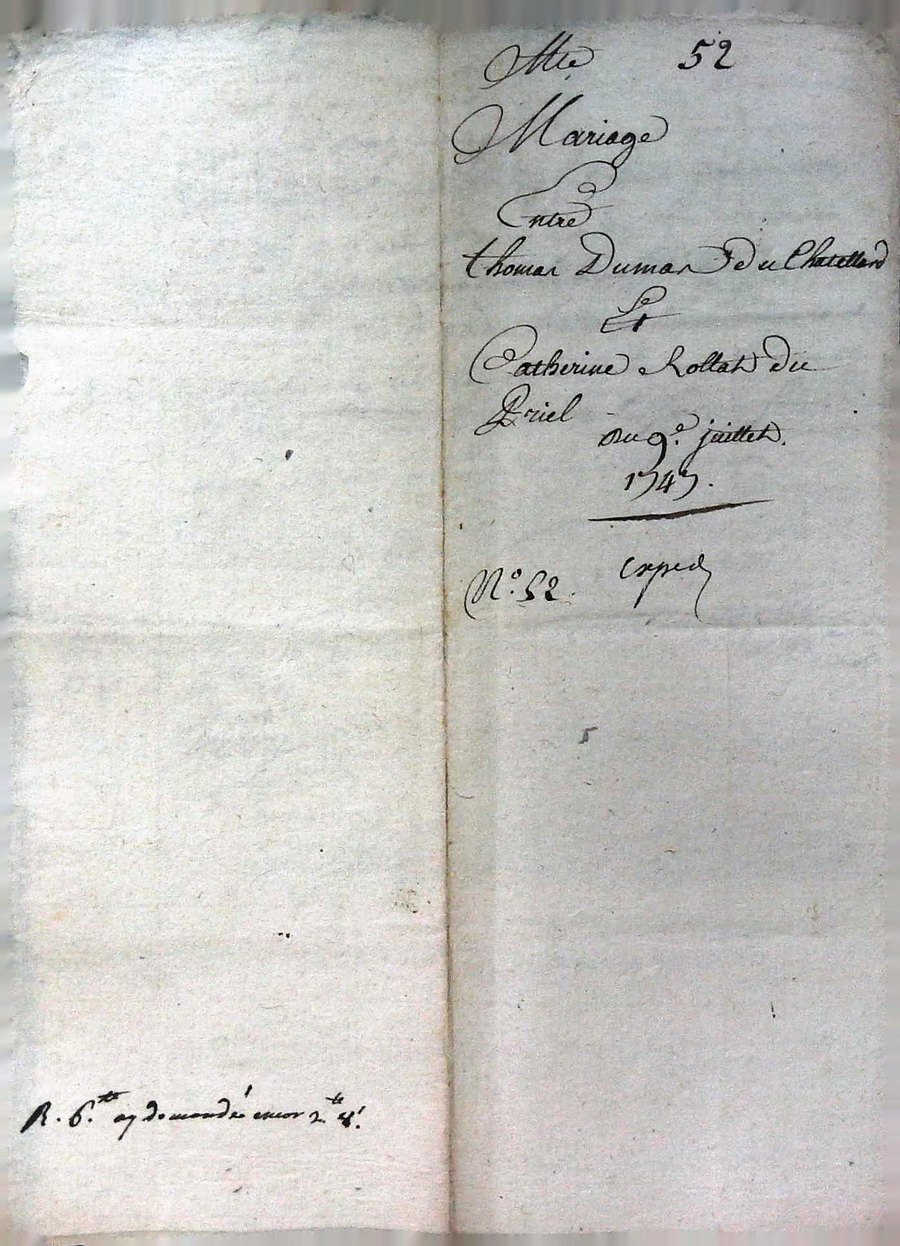 52
Mariage
Entre
thomas Dumas du Chatellard
Et
Catherine Rollat du
Briel
Du 9e. juillet.
1747.
No. 52. exped
R. 6.tt ay demandé encor 2tt 8s.